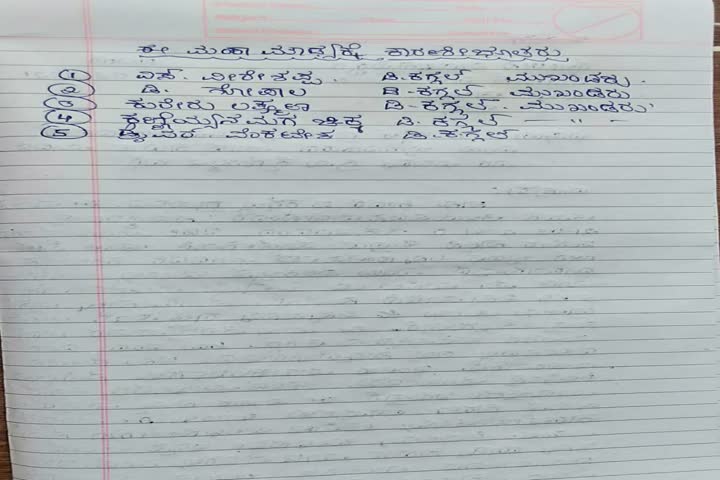 ಈ ಮಹಾ ಮಾರ್ಗಕ್ಕೆ ಕಾರಣೀಭೂತರು
1 ಎಸ್. ವೀರೇಶಪ್ಪ ಡಿ.ಕಗ್ಗಲ್ ಮುಖಂಡರು.
2 ಡಿ. ಗೋಪಾಲ ಡಿ-ಕಗ್ಗಲ್ ಮುಖಂಡರು
3 ಕುರೇರು ಲಕ್ಷ್ಮಣ ಡಿ-ಕಗ್ಗಲ್. ಮುಖಂಡರು
4 ಮಗ ಚಿಕ್ಕ ಡಿ. ಕಗ್ಗಲ್ — " —
5 ವೆಂಕಟೇಶ ಡಿ.ಕಗ್ಗಲ್